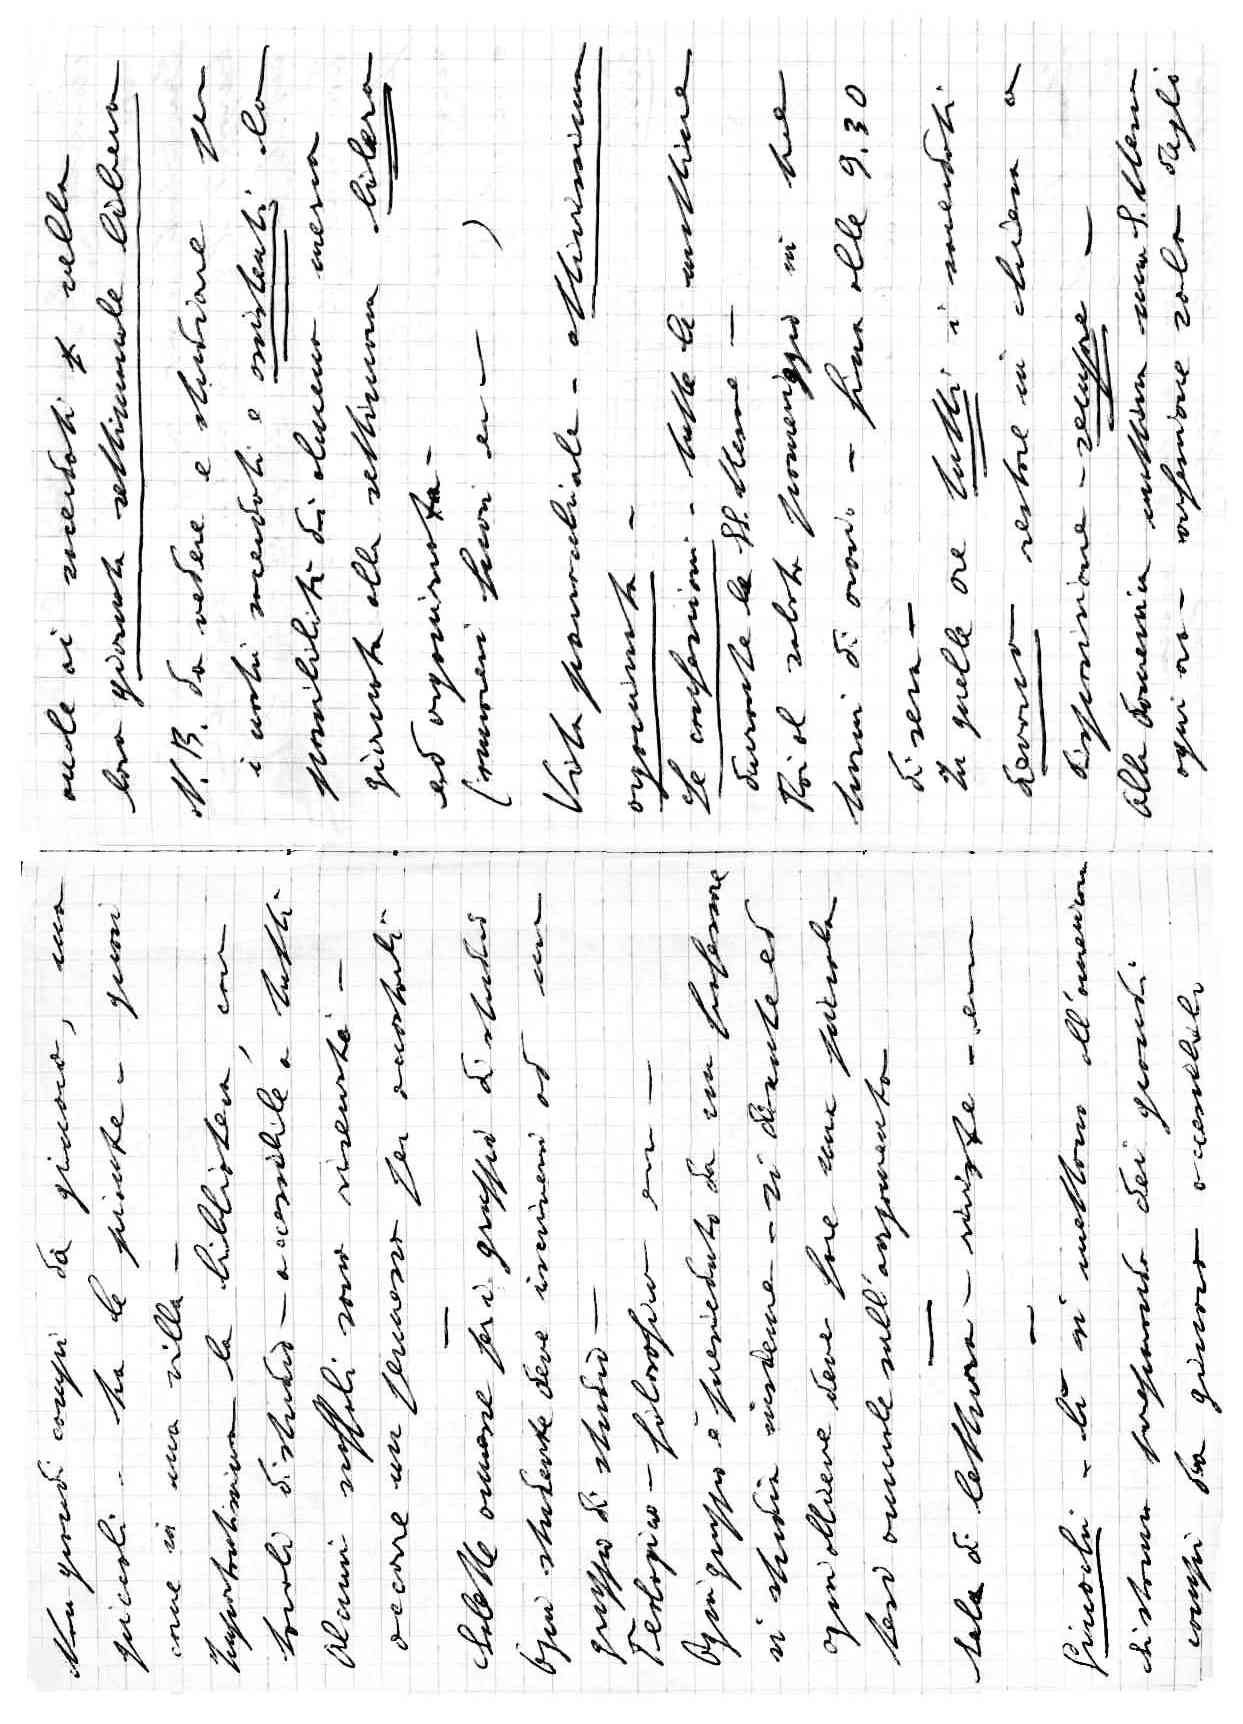 Non grandi campi da giuoco, ma
piccoli - tra le piante - quasi
come in una villa -
Importantissima la biblioteca, con
tavoli di studio - accessibile a tutti
Alcuni scaffali sono riservati -
occorre un permesso per accostarli
Salette annesse per i gruppi di studio
Ogni studente deve iscriversi ad un
gruppo di studio -
Teologico - filosofico ecc -
Ogni gruppo è presieduto da un professore
si studia insieme - si discute ed
ogni allievo deve fare una piccola
tesi annuale sull'argomento
Sala di lettura - riviste - ecc
Piccoli - lì si mettono all'
distanza dei grandi
campi da giuoco
anche ai sacerdoti x nella
loro giornata settimanale libera
N.B. da vedere e studiare per
i nostri sacerdoti e assistenti la
possibilità di almeno mezza
giornata alla settimana libera
ed organizzata -
(muoversi fuori ecc - )
Vita parrocchiale - attivissima
organizzata -
Le confessioni - tutte le mattine
durante le SS. Messe -
Poi al sabato pomeriggio in tre
turni di orario - fino alle 9.30
di sera -
In quelle ore tutti i sacerdoti
devono restare in chiesa a
disposizione - sempre -
Alla domenica mattina una S. Messa
ogni ora - confessione solo degli